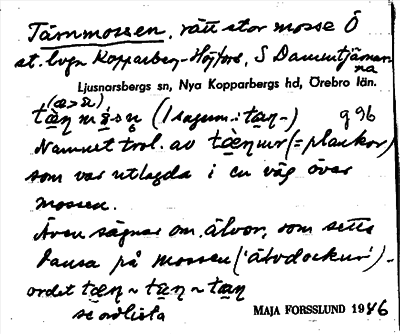 Tärnmossen, rätt stor mosse Ö
st. lvgn Kopparberg-Höjfors, S Dammtjärnar
na
Ljusnarsbergs sn, Nya Kopparbergs hd, Örebro län.
Namnet trol. av (= plankor)
som var utlagda i en väg över
mossen.
Även sägnar om älvor, som setts
dansa på mossen ('älvdockur').
ordet
se ordlista
MAJA FORSSLUND 1946